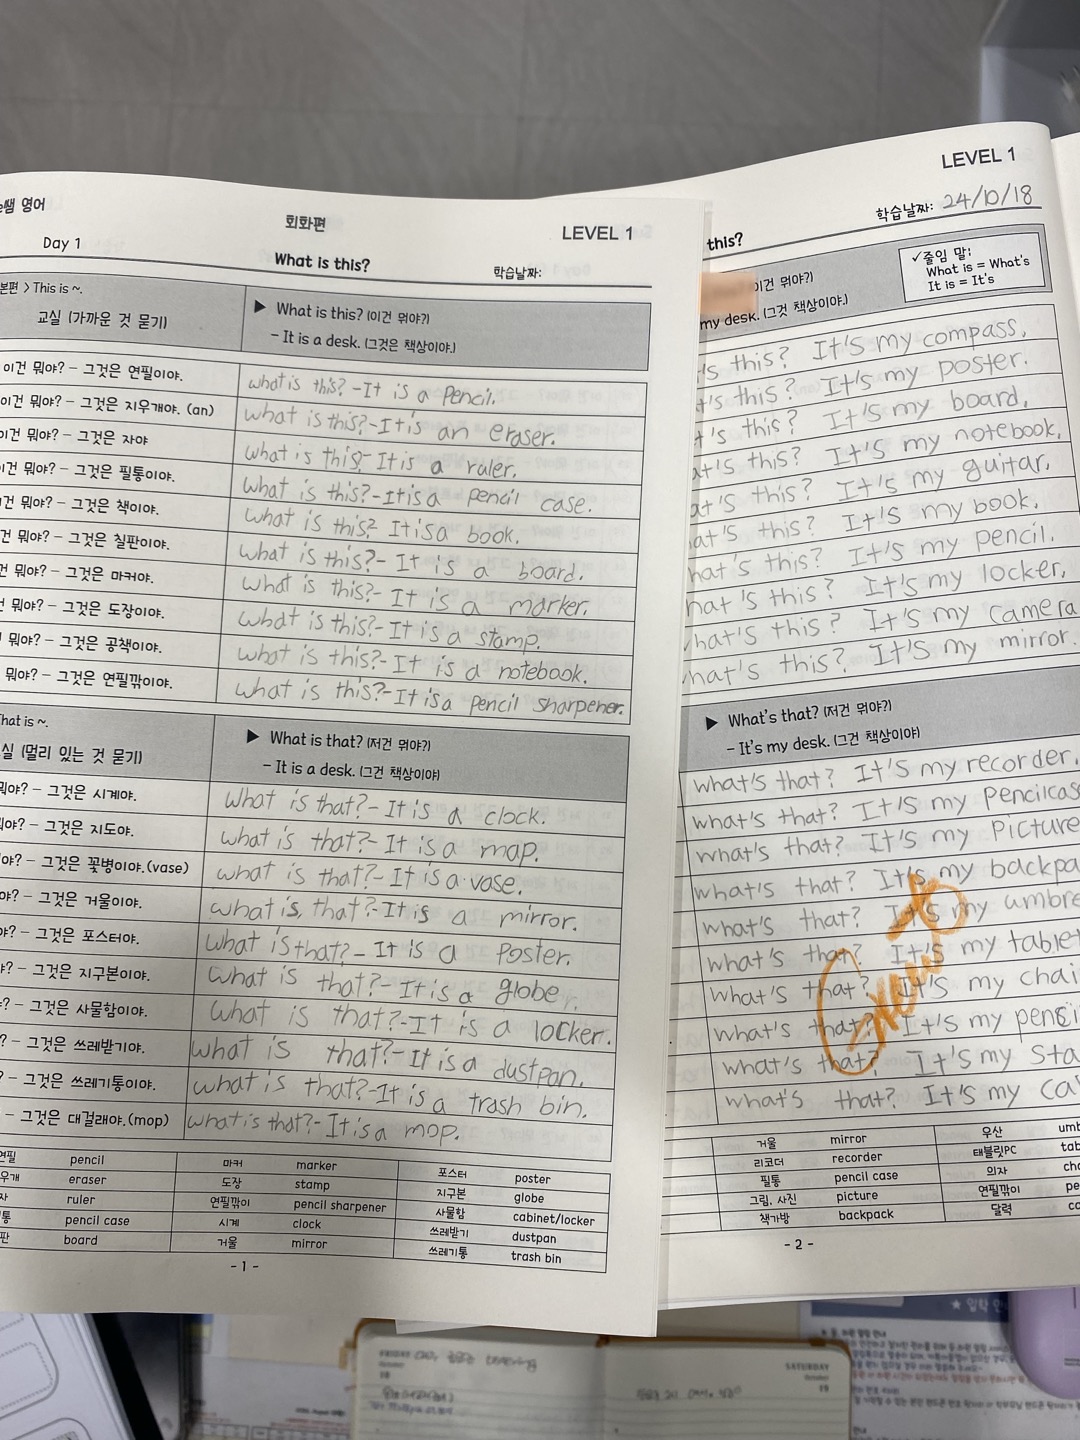 쌤 영어
회화편
LEVEL 1
Day 1
What is this?
학습날짜:
본편 > This is ~.
교실 (가까운 것 묻기)
▶ What is this? (이건 뭐야?)
- It is a desk. (그것은 책상이야.)
이건 뭐야? - 그것은 연필이야.
what is this? - It is a pencil.
이건 뭐야? - 그것은 지우개야. (an)
what is this? - It is an eraser.
이건 뭐야? - 그것은 자야
what is this? - It is a ruler.
이건 뭐야? - 그것은 필통이야.
what is this? - It is a pencil case.
건 뭐야? - 그것은 책이야.
what is this? It is a book.
건 뭐야? - 그것은 칠판이야.
what is this? - It is a board.
뭐야? - 그것은 마커야.
what is this? - It is a marker.
뭐야? - 그것은 도장이야.
what is this? - It is a stamp.
뭐야? - 그것은 공책이야.
what is this? - It is a notebook.
뭐야? - 그것은 연필깎이야.
what is this? - It is a pencil sharpener.
That is ~.
실 (멀리 있는 것 묻기)
▶ What is that? (저건 뭐야?)
- It is a desk. (그건 책상이야)
뭐야? - 그것은 시계야.
what is that? - It is a clock.
뭐야? - 그것은 지도야.
what is that? - It is a map.
야? - 그것은 꽃병이야.(vase)
what is that? - It is a vase.
야? - 그것은 거울이야.
what is, that? - It is a mirror.
야? - 그것은 포스터야.
what is that? - It is a poster.
? - 그것은 지구본이야.
what is that? - It is a globe.
? - 그것은 사물함이야.
what is that? - It is a locker.
? - 그것은 쓰레받기야.
what is that? - It is a dustpan.
? - 그것은 쓰레기통이야.
what is that? - It is a trash bin.
- 그것은 대걸래야.(mop)
what is that? - It is a mop.
연필 pencil 마커 marker 포스터 poster
우개 eraser 도장 stamp 지구본 globe
자 ruler 연필깎이 pencil sharpener 사물함 cabinet/locker
통 pencil case 시계 clock 쓰레받기 dustpan
판 board 거울 mirror 쓰레기통 trash bin
- 1 -
LEVEL 1
학습날짜: 24/10/18
this?
이건 뭐야?)
my desk. (그것 책상이야.)
✓줄임 말!
What is = What's
It is = It's
's this? It's my compass.
t's this? It's my poster.
t's this? It's my board.
at's this? It's my notebook.
at's this? It's my guitar.
hat's this? It's my book.
hat's this? It's my pencil.
hat's this? It's my locker.
what's this? It's my camera
what's this? It's my mirror.
▶ What's that? (저건 뭐야?)
- It's my desk. (그건 책상이야)
what's that? It's my recorder.
what's that? It's my pencilcas
what's that? It's my picture
what's that? It's my backpa
what's that? It's my umbre
what's that? It's my tablet
what's that? It's my chai
what's that? It's my penci
what's that? It's my sta
what's that? It's my ca
거울 mirror 우산 umb
리코더 recorder 태블릿PC tab
필통 pencil case 의자 cha
그림, 사진 picture 연필깎이 pe
책가방 backpack 달력 ca
- 2 -
FRIDAY
October
18
SATURDAY
October
19